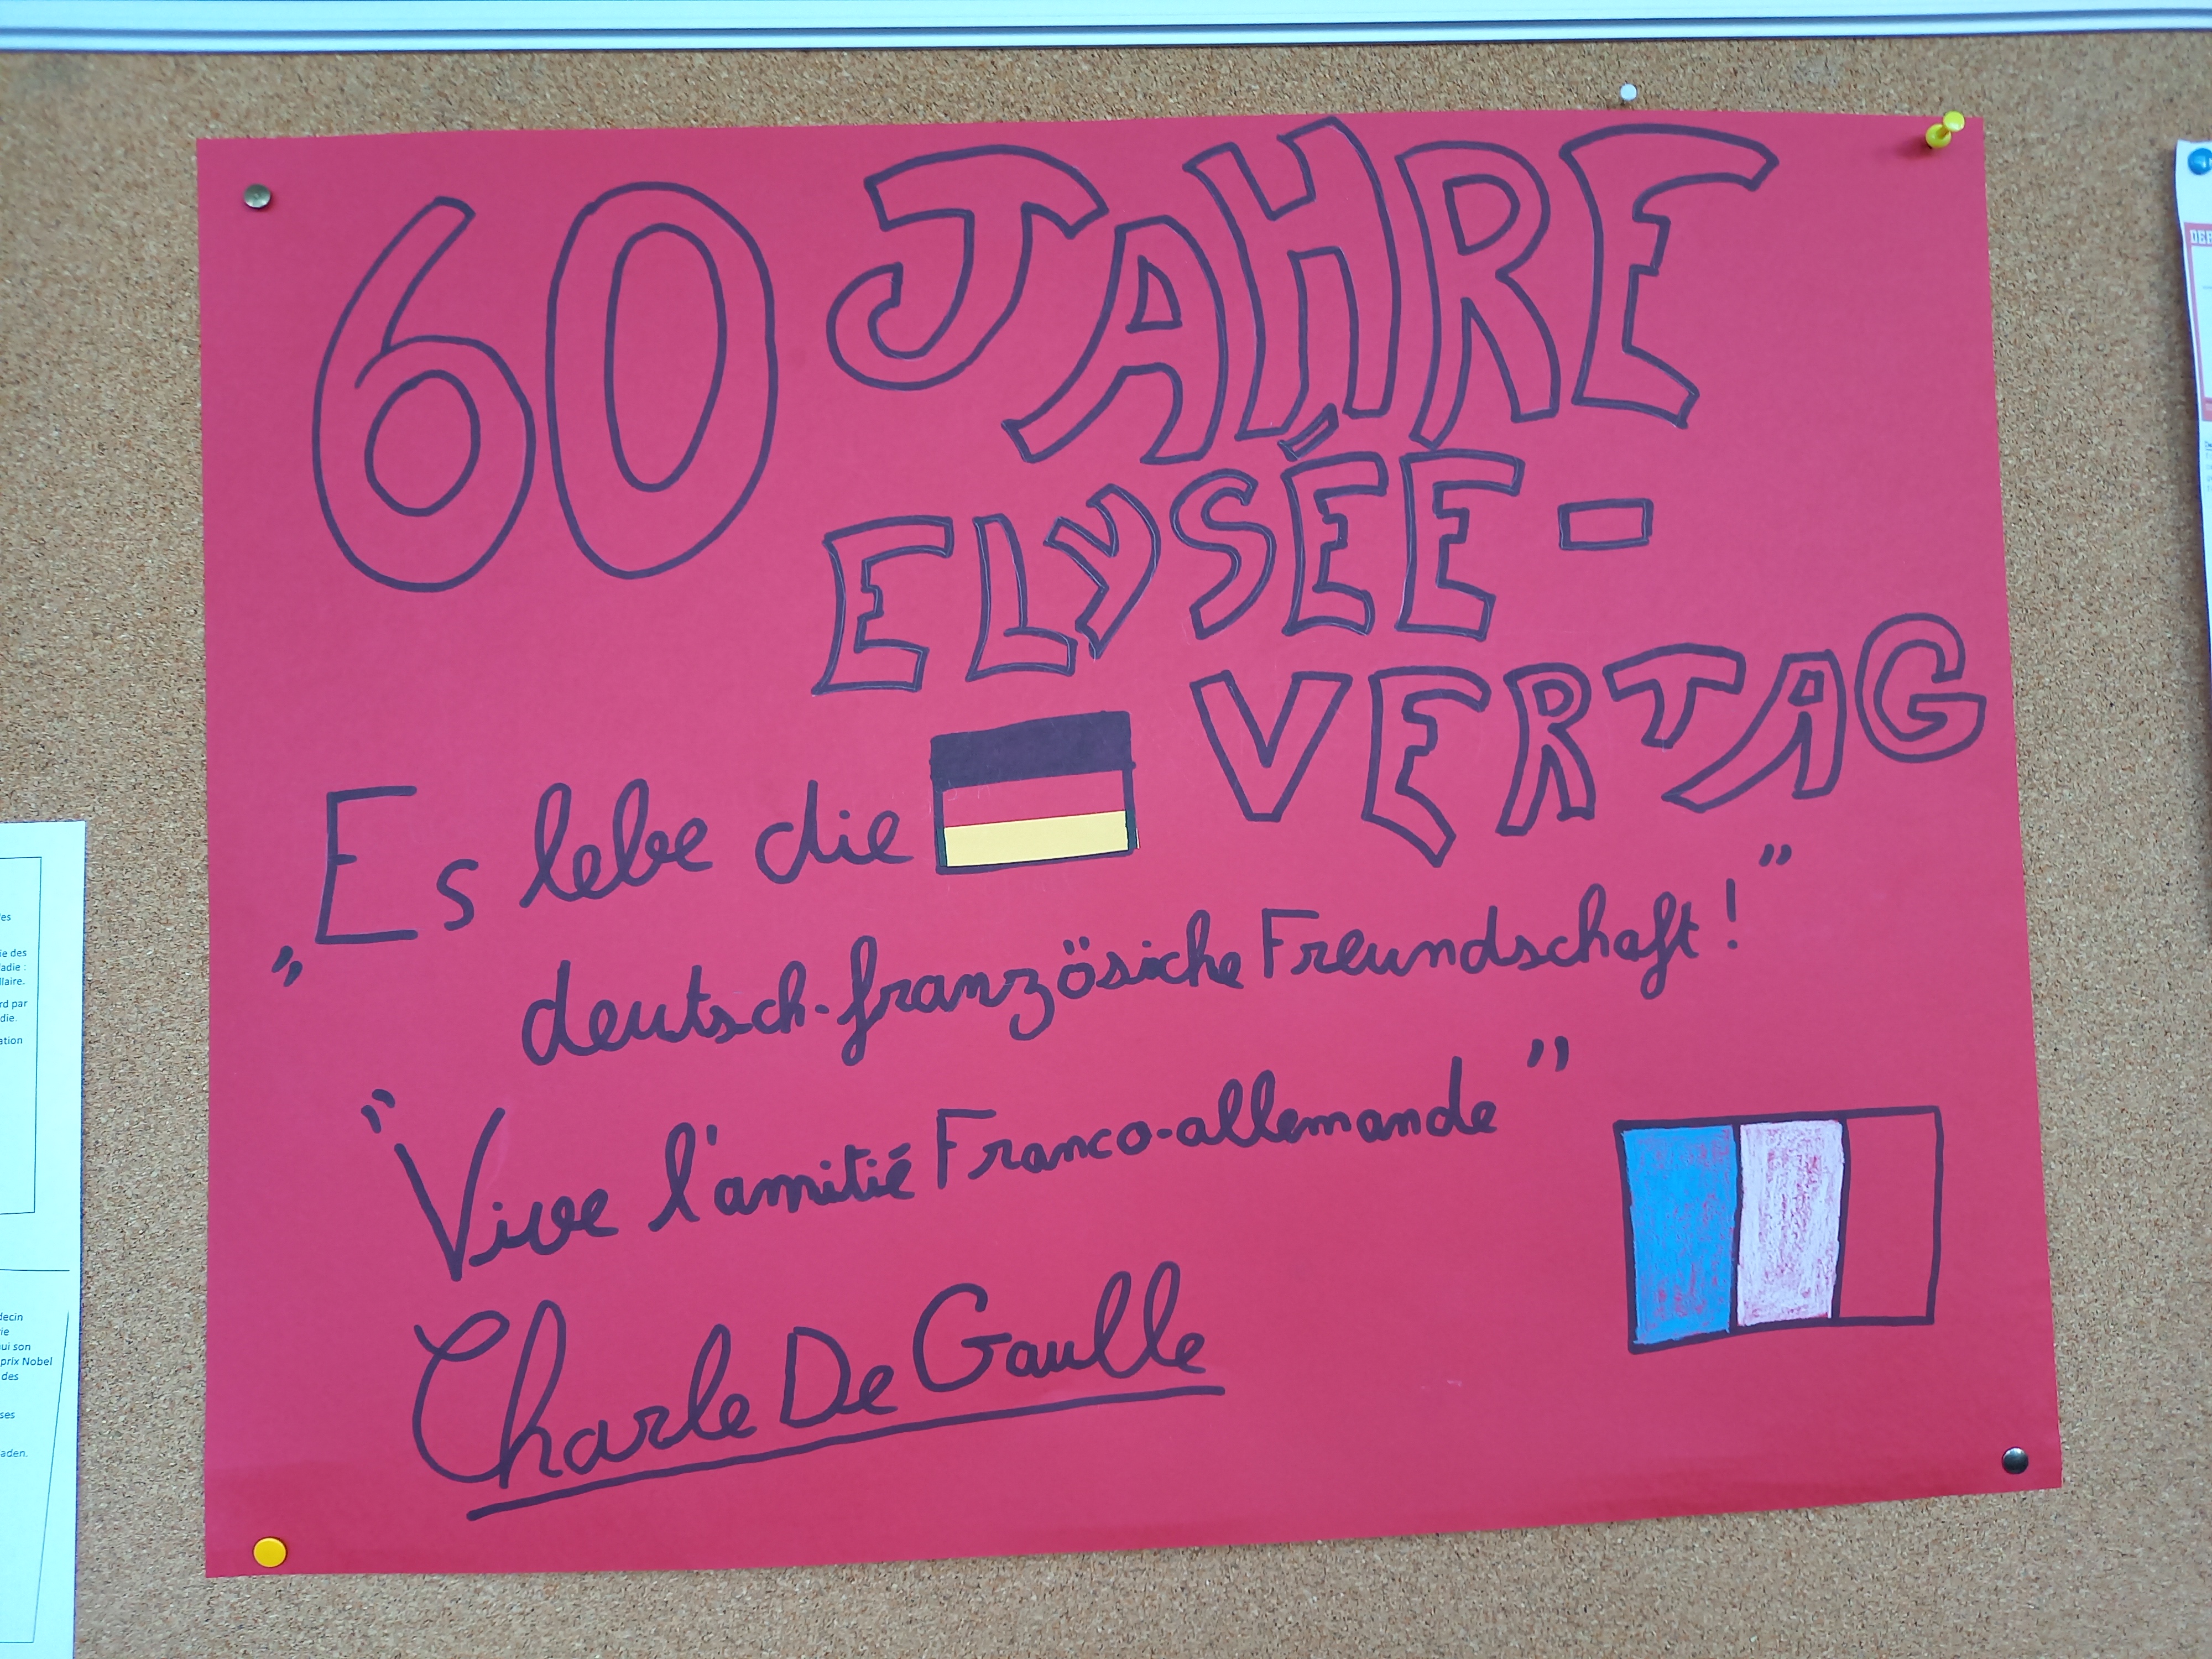 60 JAHRE
ELYSÉE-
VERTAG
„Es lebe die
deutsch-französiche Freundschaft!”
“Vive l'amitié Franco-allemande”
Charle De Gaulle
ie des
adie :
llaire.
rd par
die.
ation
decin
ui son
prix Nobel
des
ses
aden.